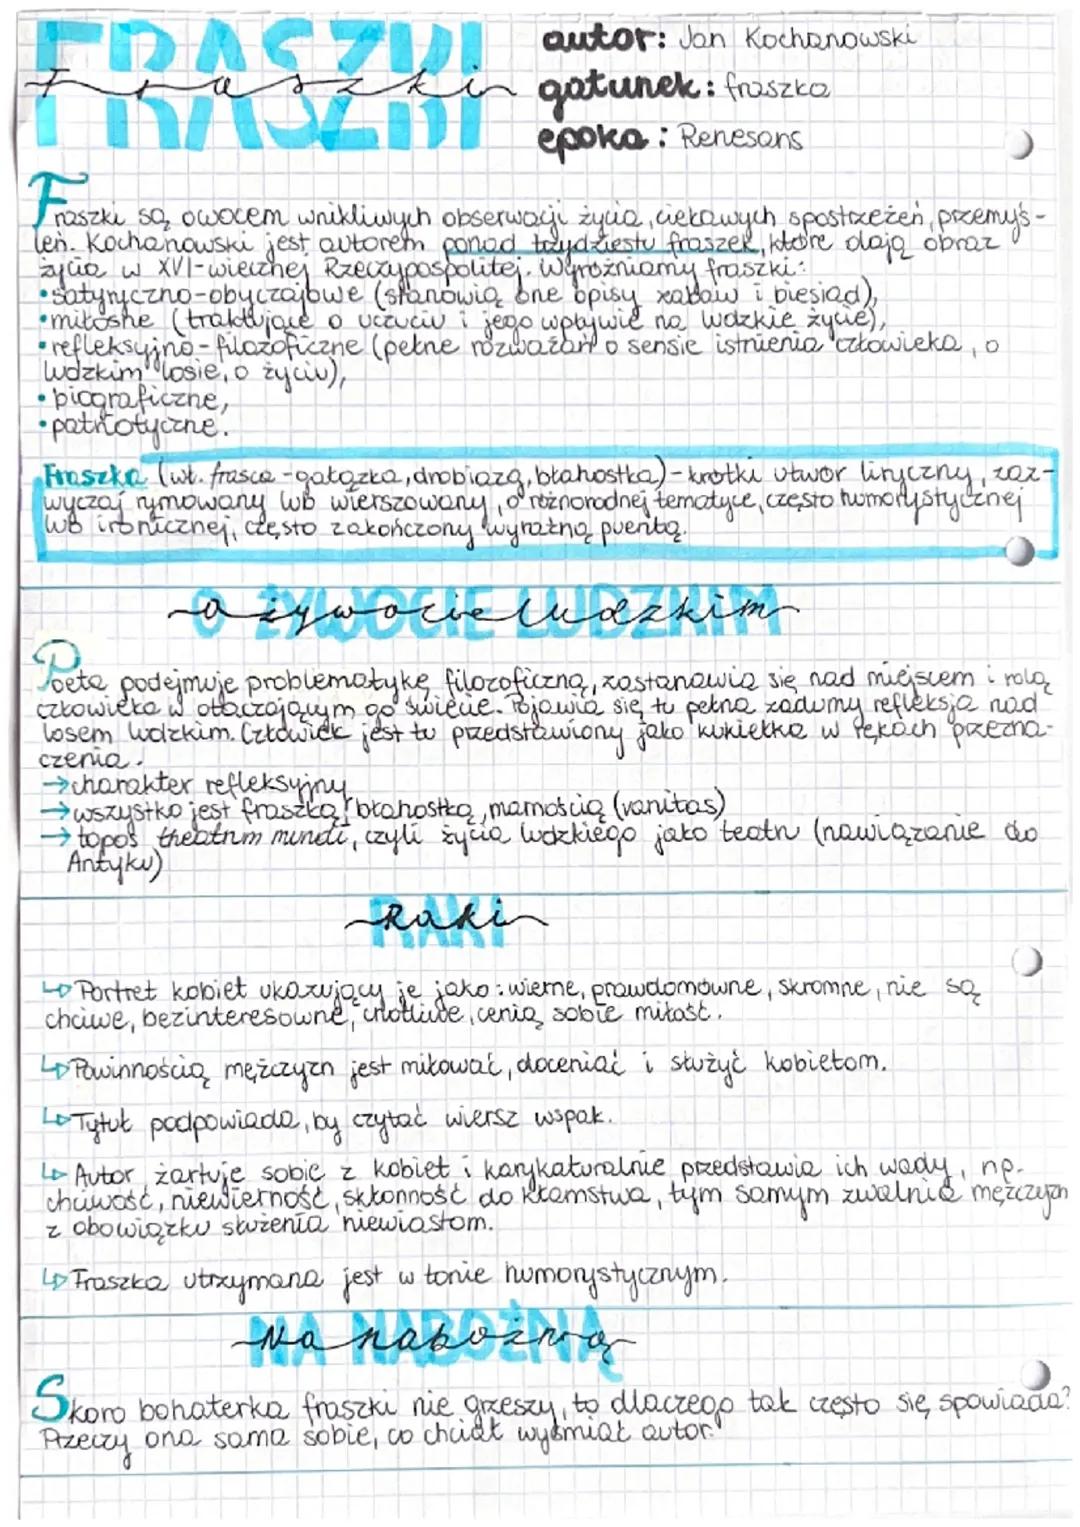 FRASZKI
Fraszki
autor: Jan Kochanowski
gatunek: fraszka
epoka: Renesans
Fraszki są owocem wnikliwych obserwacji życia, ciekawych spostrzeżeń, przemyś-
leń. Kochanowski jest autorem ponad trzydziestu fraszek, które dają obraz
życia w XVI-wiecznej Rzeczypospolitej. Wyróżniamy fraszki:
•satyryczno-obyczajowe (stanowią one opisy zabaw i biesiad),
•miłosne (traktujące o uczuciu i jego wpływie na ludzkie życie),
•refleksyjno-filozoficzne (pełne rozważań o sensie istnienia człowieka, o
ludzkim losie, o życiu),
•biograficzne,
•patriotyczne.
Fraszka (wł. frasca - gałązka, drobiazg, błahostka) - krótki utwór liryczny, zaz-
wyczaj rymowany lub wierszowany, o różnorodnej tematyce, często humorystycznej
lub ironicznej, często zakończony wyraźną puentą.
O ŻYWOCIE LUDZKIM
o żywocie ludzkim
Poeta podejmuje problematykę filozoficzną, zastanawia się nad miejscem i rolą
człowieka w otaczającym go świecie. Pojawia się tu pełna zadumy refleksja nad
losem ludzkim. Człowiek jest tu przedstawiony jako kukiełka w rękach przezna-
czenia.
→charakter refleksyjny
→wszystko jest fraszką, błahostką, marnością (vanitas)
→topos theatrum mundi, czyli życia ludzkiego jako teatru (nawiązanie do
Antyku)
RAKI
Raki
↳Portret kobiet ukazujący je jako: wierne, prawdomówne, skromne, nie są
chciwe, bezinteresowne, cnotliwe, cenią sobie miłość.
↳Powinnością mężczyzn jest miłować, doceniać i służyć kobietom.
↳Tytuł podpowiada, by czytać wiersz wspak.
↳Autor żartuje sobie z kobiet i karykaturalnie przedstawia ich wady, np.
chciwość, niewierność, skłonność do kłamstwa, tym samym zwalnia mężczyzn
z obowiązku służenia niewiastom.
↳Fraszka utrzymana jest w tonie humorystycznym.
NA NABOŻNĄ
Na nabożną
Skoro bohaterka fraszki nie grzeszy, to dlaczego tak często się spowiada?
Przeczy ona sama sobie, co chciał wyśmiać autor.